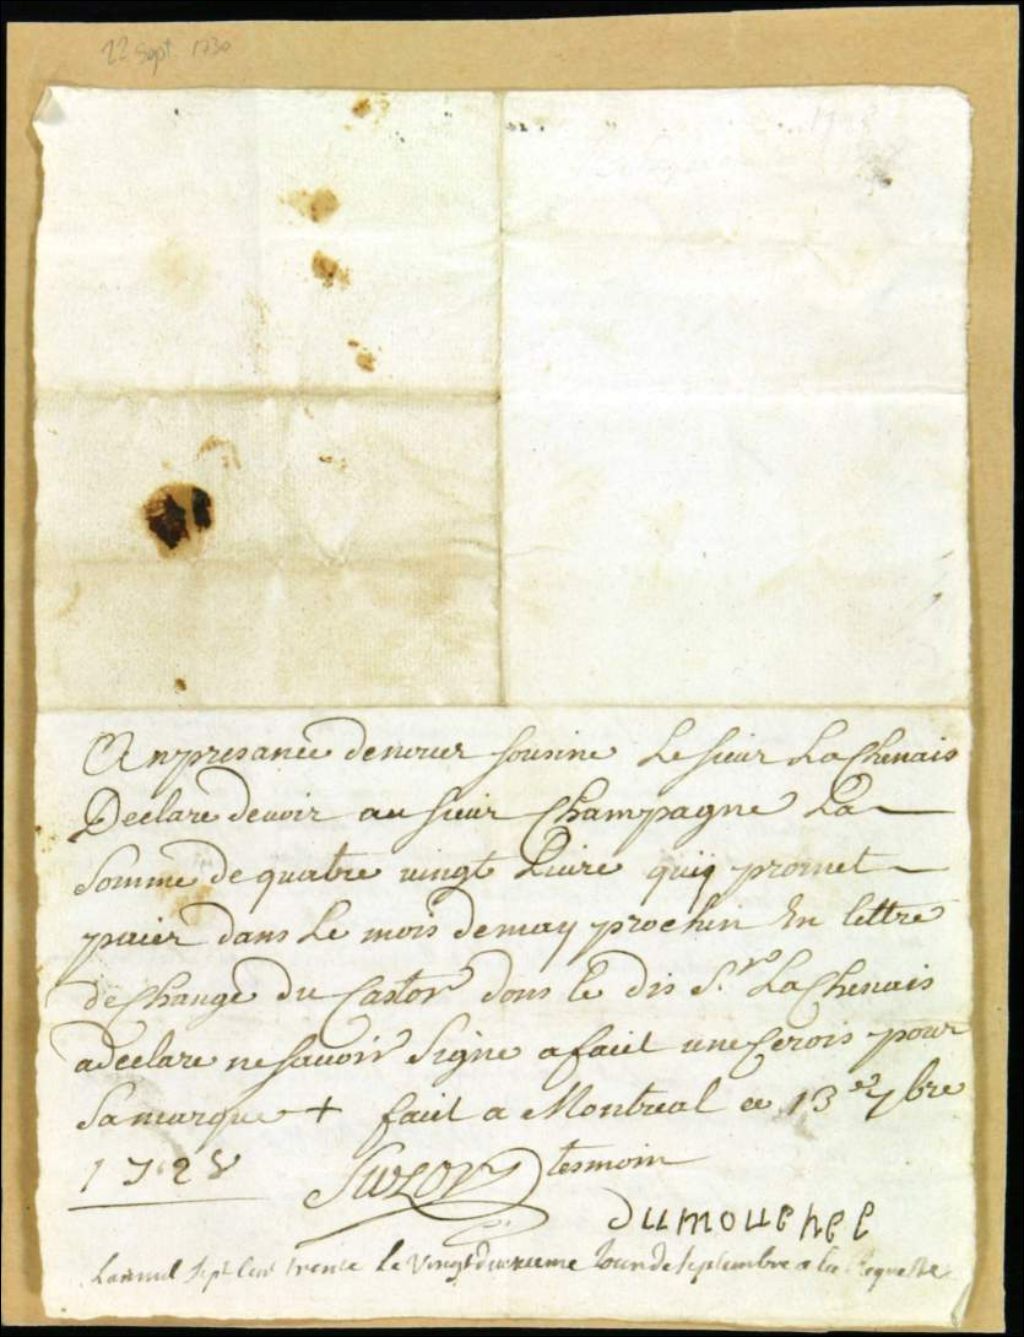 22 Sept. 1730
En presance de nouer sousine Le sieur La Chenais
Declare devoir au sieur Champagne La
Somme de quatre vingt Livre quij promet
paier dans Le mois de may prochin En lettre
de Change du Castor dons le dis Sr. La Chenais
a declare ne savoir Signe a faiet une Crois pour
Sa marque + faiet a Montreal ce 13e 7bre
1728 Suzor tesmoin
dumouchel
Lan mil Sept Cent trente Le vingt deuxieme Jour de Septembre a la Requeste